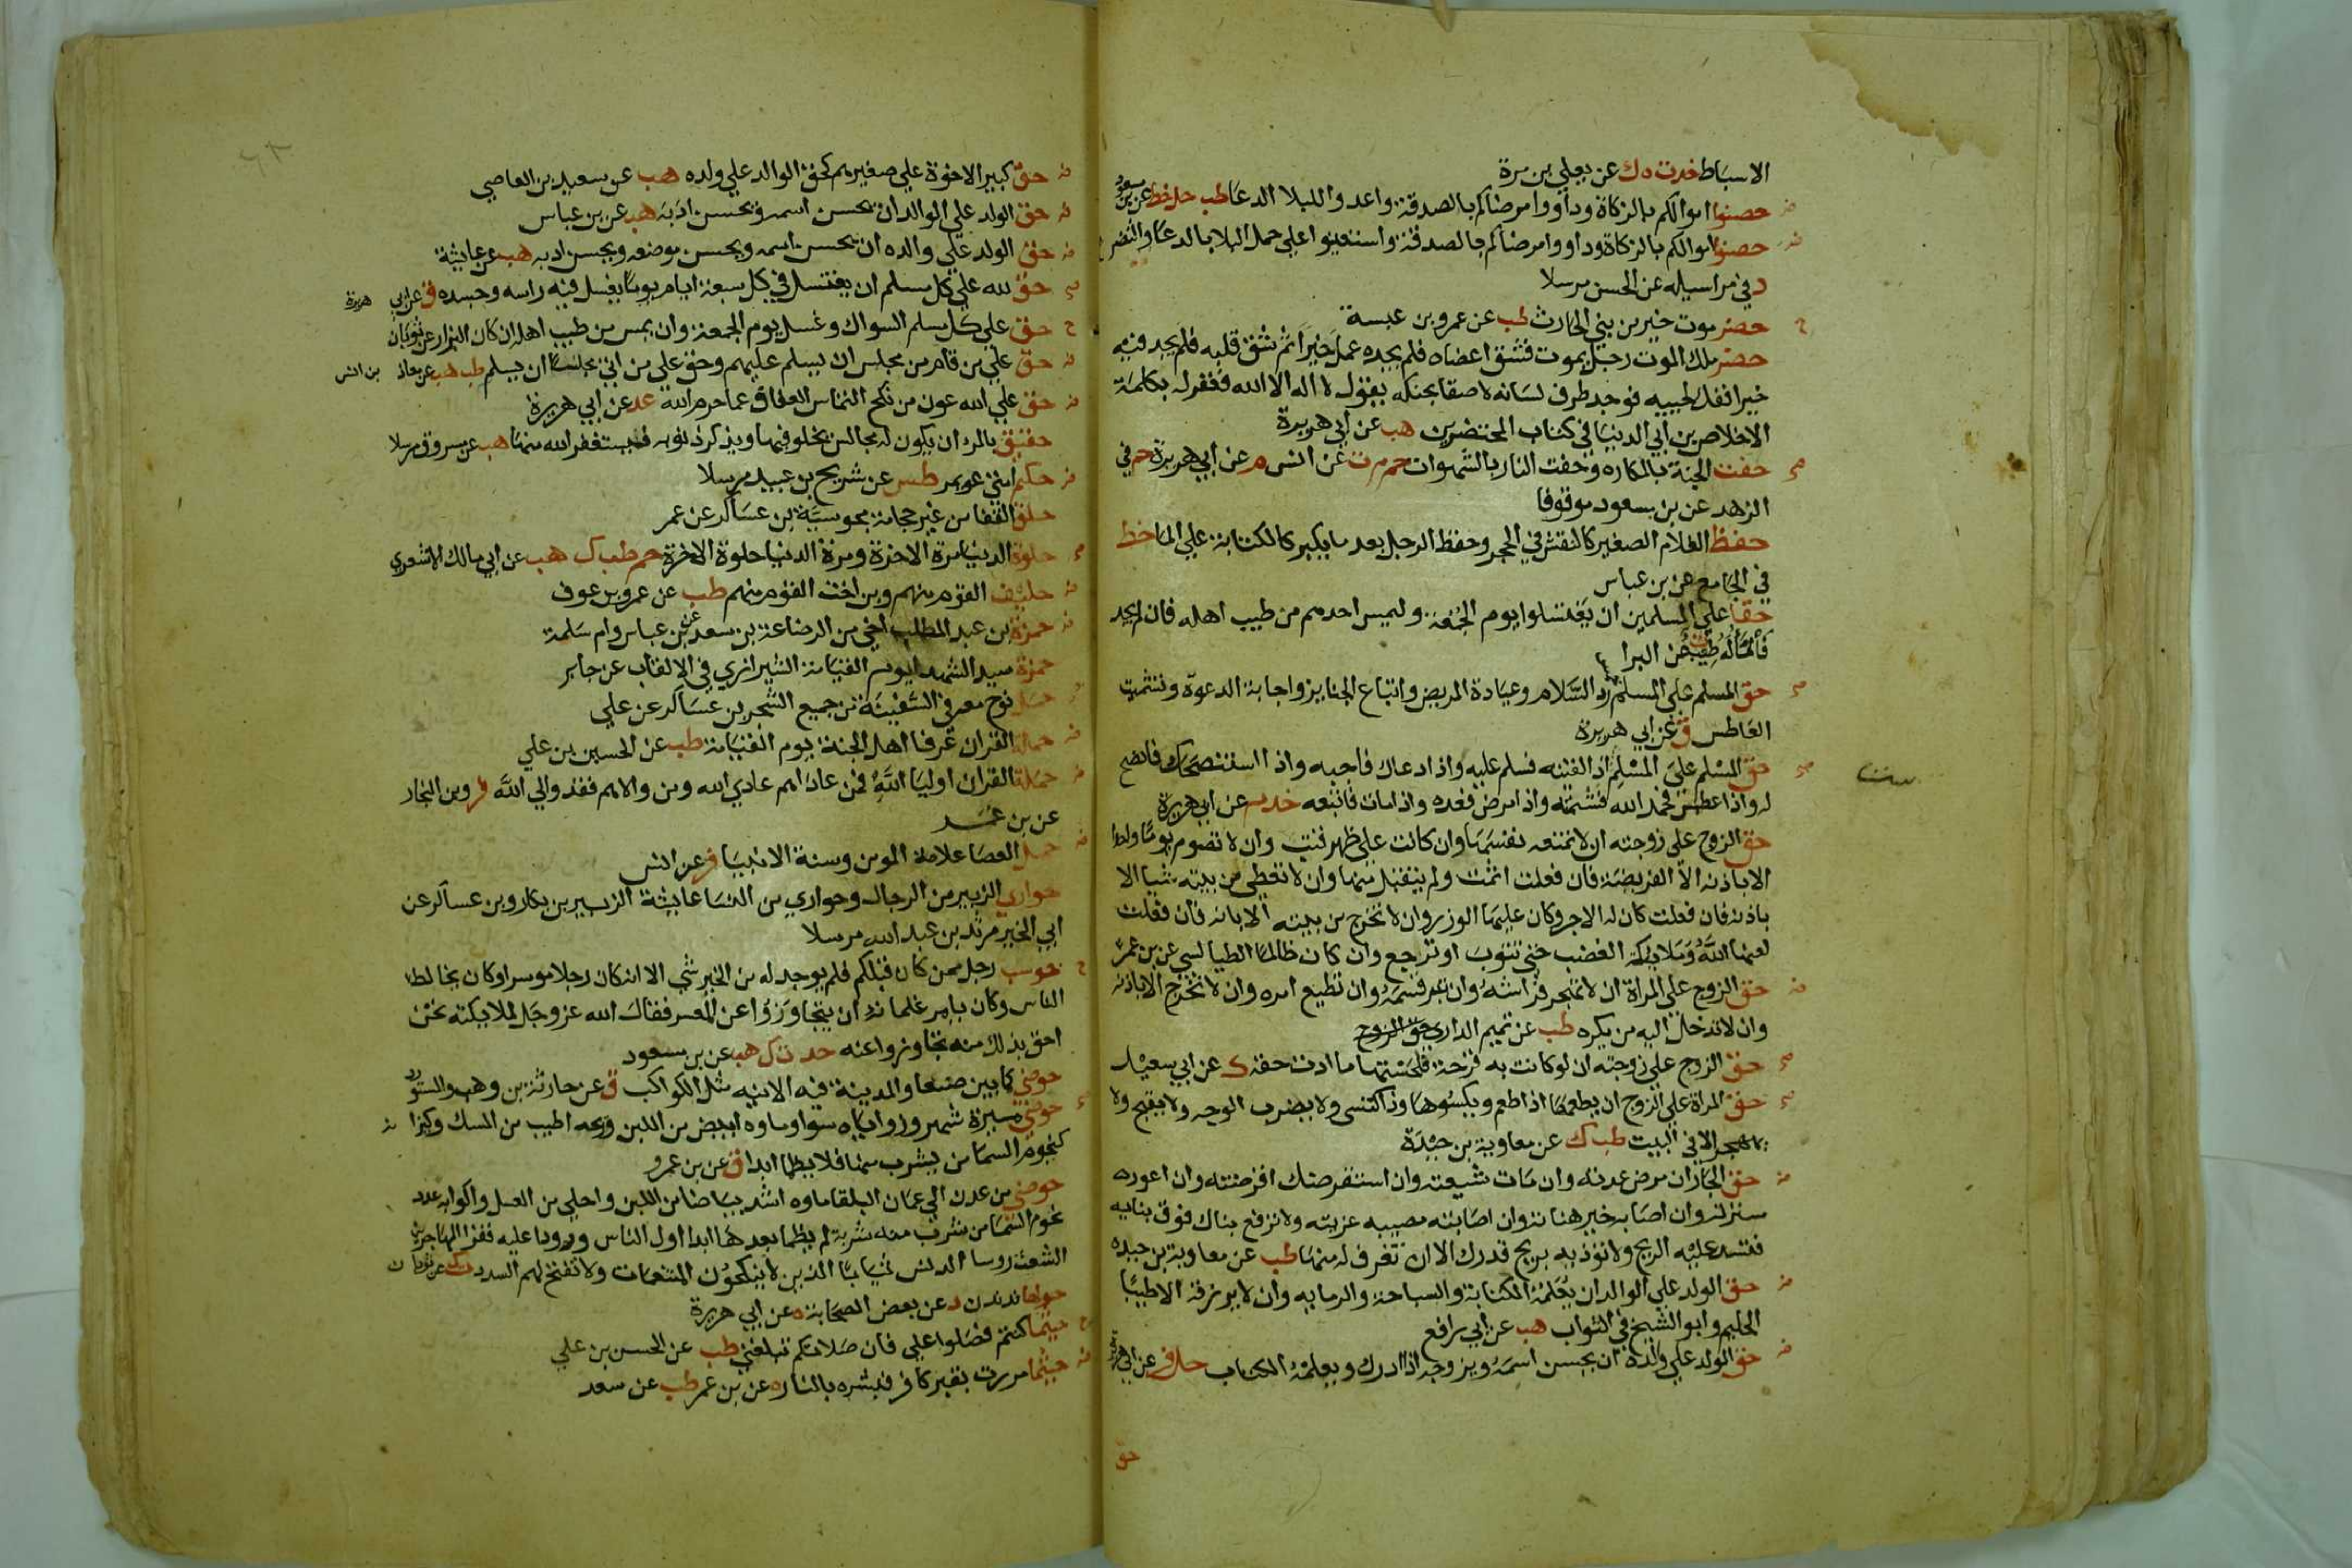 الاسباط خدت ه ك عن يعلي بن مرة
حصنوا اموالكم بالزكاة وداووا مرضاكم بالصدقة واعدوا للبلا الدعا طب حل خط عن بن مسعود
حصنوا اموالكم بالزكاة وداووا مرضاكم بالصدقة واستعينوا علي حمل البلا بالدعا والتضرع
د في مراسيله عن الحسن مرسلا
حضرموت خير من بني الحارث طب عن عمرو بن عبسة
حضر ملك الموت رجل يموت فشق اعضاه فلم يجده عمل خيرا ثم شق قلبه فلم يجد فيه
خيرا ففك لحييه فوجد طرف لسانه لاصقا بحنكه يقول لا اله الا الله فغفر له بكلمة
الاخلاص بن ابي الدنيا في كتاب المحتضرين هب عن ابي هريرة
حفت الجنة بالمكاره وحفت النار بالشهوات حم م ت عن انس م عن ابي هريرة حم في
الزهد عن بن مسعود موقوفا
حفظ الغلام الصغير كالنقش في الحجر وحفظ الرجل بعد ما يكبر كالكتابة علي الما خط
في الجامع عن بن عباس
حقا علي المسلمين ان يغتسلوا يوم الجمعة وليمس احدهم من طيب اهله فان لم يجد
فالما له طيب ت عن البرا
حق المسلم علي المسلم رد السلام وعيادة المريض واتباع الجنايز واجابة الدعوة وتشميت
العاطس ق عن ابي هريرة
حق المسلم علي المسلم اذا لقيته فسلم عليه واذا دعاك فاجبه واذا استنصحك فانصح
له واذا عطس فحمد الله فشمته واذا مرض فعده واذا مات فاتبعه خد م عن ابي هريرة
حق الزوج علي زوجته ان لا تمنعه نفسها وان كانت علي ظهر قتب وان لا تصوم يوما واحدا
الا باذنه الا الفريضة فان فعلت اثمت ولم يتقبل منها وان لا تعطي من بيته شيا الا
باذنه فان فعلت كان له الاجر وكان عليها الوزر وان لا تخرج من بيته الا باذنه فان فعلت
لعنها الله وملايكة الغضب حتي تتوب او ترجع وان كان ظالما الطيالسي عن بن عمر
حق الزوج علي المراة ان لا تهجر فراشه وان تبر قسمه وان تطيع امره وان لا تخرج الا باذنه
وان لا تدخل اليه من يكره طب عن تميم الداري حق الزوج
حق الزوج علي زوجته ان لو كانت به قرحة فلحستها ما ادت حقه ك عن ابي سعيد
حق المراة علي الزوج ان يطعمها اذا طعم ويكسوها اذا اكتسي ولا يضرب الوجه ولا يقبح ولا
يهجر الا في البيت طب ك عن معاوية بن حيدة
حق الجار ان مرض عدته وان مات شيعته وان استقرضك اقرضته وان اعور
سترته وان اصابه خير هناته وان اصابته مصيبه عزيته ولا ترفع بناك فوق بنايه
فتسد عليه الريح ولا توذيه بريح قدرك الا ان تغرف له منها طب عن معاوية بن حيده
حق الولد علي الوالد ان يعلمه الكتابة والسباحة والرمايه وان لا يرزقه الا طيبا
الحليم وابو الشيخ في الثواب هب عن ابي رافع
حق الولد علي والده ان يحسن اسمه ويزوجه اذا ادرك ويعلمه الكتاب حل فر عن ابي هريرة
حق
حق كبير الاخوة علي صغيرهم كحق الوالد علي ولده هب عن سعيد بن العاصي
حق الولد علي الوالد ان يحسن اسمه ويحسن ادبه هب عن بن عباس
حق الولد علي والده ان يحسن اسمه ويحسن موضعه ويحسن ادبه هب عن عايشة
حق لله علي كل مسلم ان يغتسل في كل سبعة ايام يوما يغسل فيه راسه وجسده ق عن ابي هريرة
حق علي كل مسلم السواك وغسل يوم الجمعة وان يمس من طيب اهله ان كان البزار عن ثوبان
حق علي من قام من مجلس ان يسلم عليهم وحق علي من اتي مجلسا ان يسلم طب هب عن معاذ بن انس
حق علي الله عون من نكح التماس العفاف عما حرم الله عد عن ابي هريرة
حقيق بالمرء ان يكون له مجالس يخلو فيها ويذكر ذنوبه فيستغفر الله منها هب عن مسروق مرسلا
حكيم امتي عويمر طس عن شريح بن عبيد مرسلا
حلق القفا من غير حجامة مجوسية بن عساكر عن عمر
حلوة الدنيا مرة الاخرة ومرة الدنيا حلوة الاخرة حم طب ك هب عن ابي مالك الاشعري
حليف القوم منهم وبن اخت القوم منهم طب عن عمرو بن عوف
حمزة بن عبد المطلب اخي من الرضاعة بن سعد عن بن عباس وام سلمة
حمزة سيد الشهدا يوم القيامة الشيرازي في الالقاب عن جابر
حمل نوح معه في السفينة من جميع الشجر بن عساكر عن علي
حملة القران عرفا اهل الجنة يوم القيامة طب عن الحسين بن علي
حملة القران اوليا الله فمن عاداهم عادي الله ومن والاهم فقد والي الله فر وبن النجار
عن بن عمر
حمل العصا علامة المومن وسنة الانبيا فر عن انس
حواري الزبير من الرجال وحواري من النسا عايشة الزبير بن بكار وبن عساكر عن
ابي الخير مرثد بن عبد الله مرسلا
حوسب رجل ممن كان قبلكم فلم يوجد له من الخير شي الا انه كان رجلا موسرا وكان يخالط
الناس وكان يامر غلمانه ان يتجاوزوا عن المعسر فقال الله عز وجل لملايكته نحن
احق بذلك منه تجاوزوا عنه خد ت ك هب عن بن مسعود
حوضي كما بين صنعا والمدينة فيه الانيه مثل الكواكب ق عن حارثة بن وهب والمستورد
حوضي مسيرة شهر وزواياه سوا وماوه ابيض من اللبن وريحه اطيب من المسك وكيزانه
كنجوم السما من يشرب منها فلا يظما ابدا ق عن بن عمرو
حوضي من عدن الي عمان البلقا ماوه اشد بياضا من اللبن واحلي من العسل واكوابه عدد
نجوم السما من شرب منه شربة لم يظما بعدها ابدا اول الناس ورودا عليه فقرا المهاجرين
الشعث روسا الدنس ثيابا الذين لا ينكحون المتنعمات ولا تفتح لهم السدد ت ك عن ثوبان
حولها ندندن د عن بعض الصحابة ه عن ابي هريرة
حيثما كنتم فصلوا علي فان صلاتكم تبلغني طب عن الحسن بن علي
حيثما مررت بقبر كافر فبشره بالنار ه عن بن عمر طب عن سعد